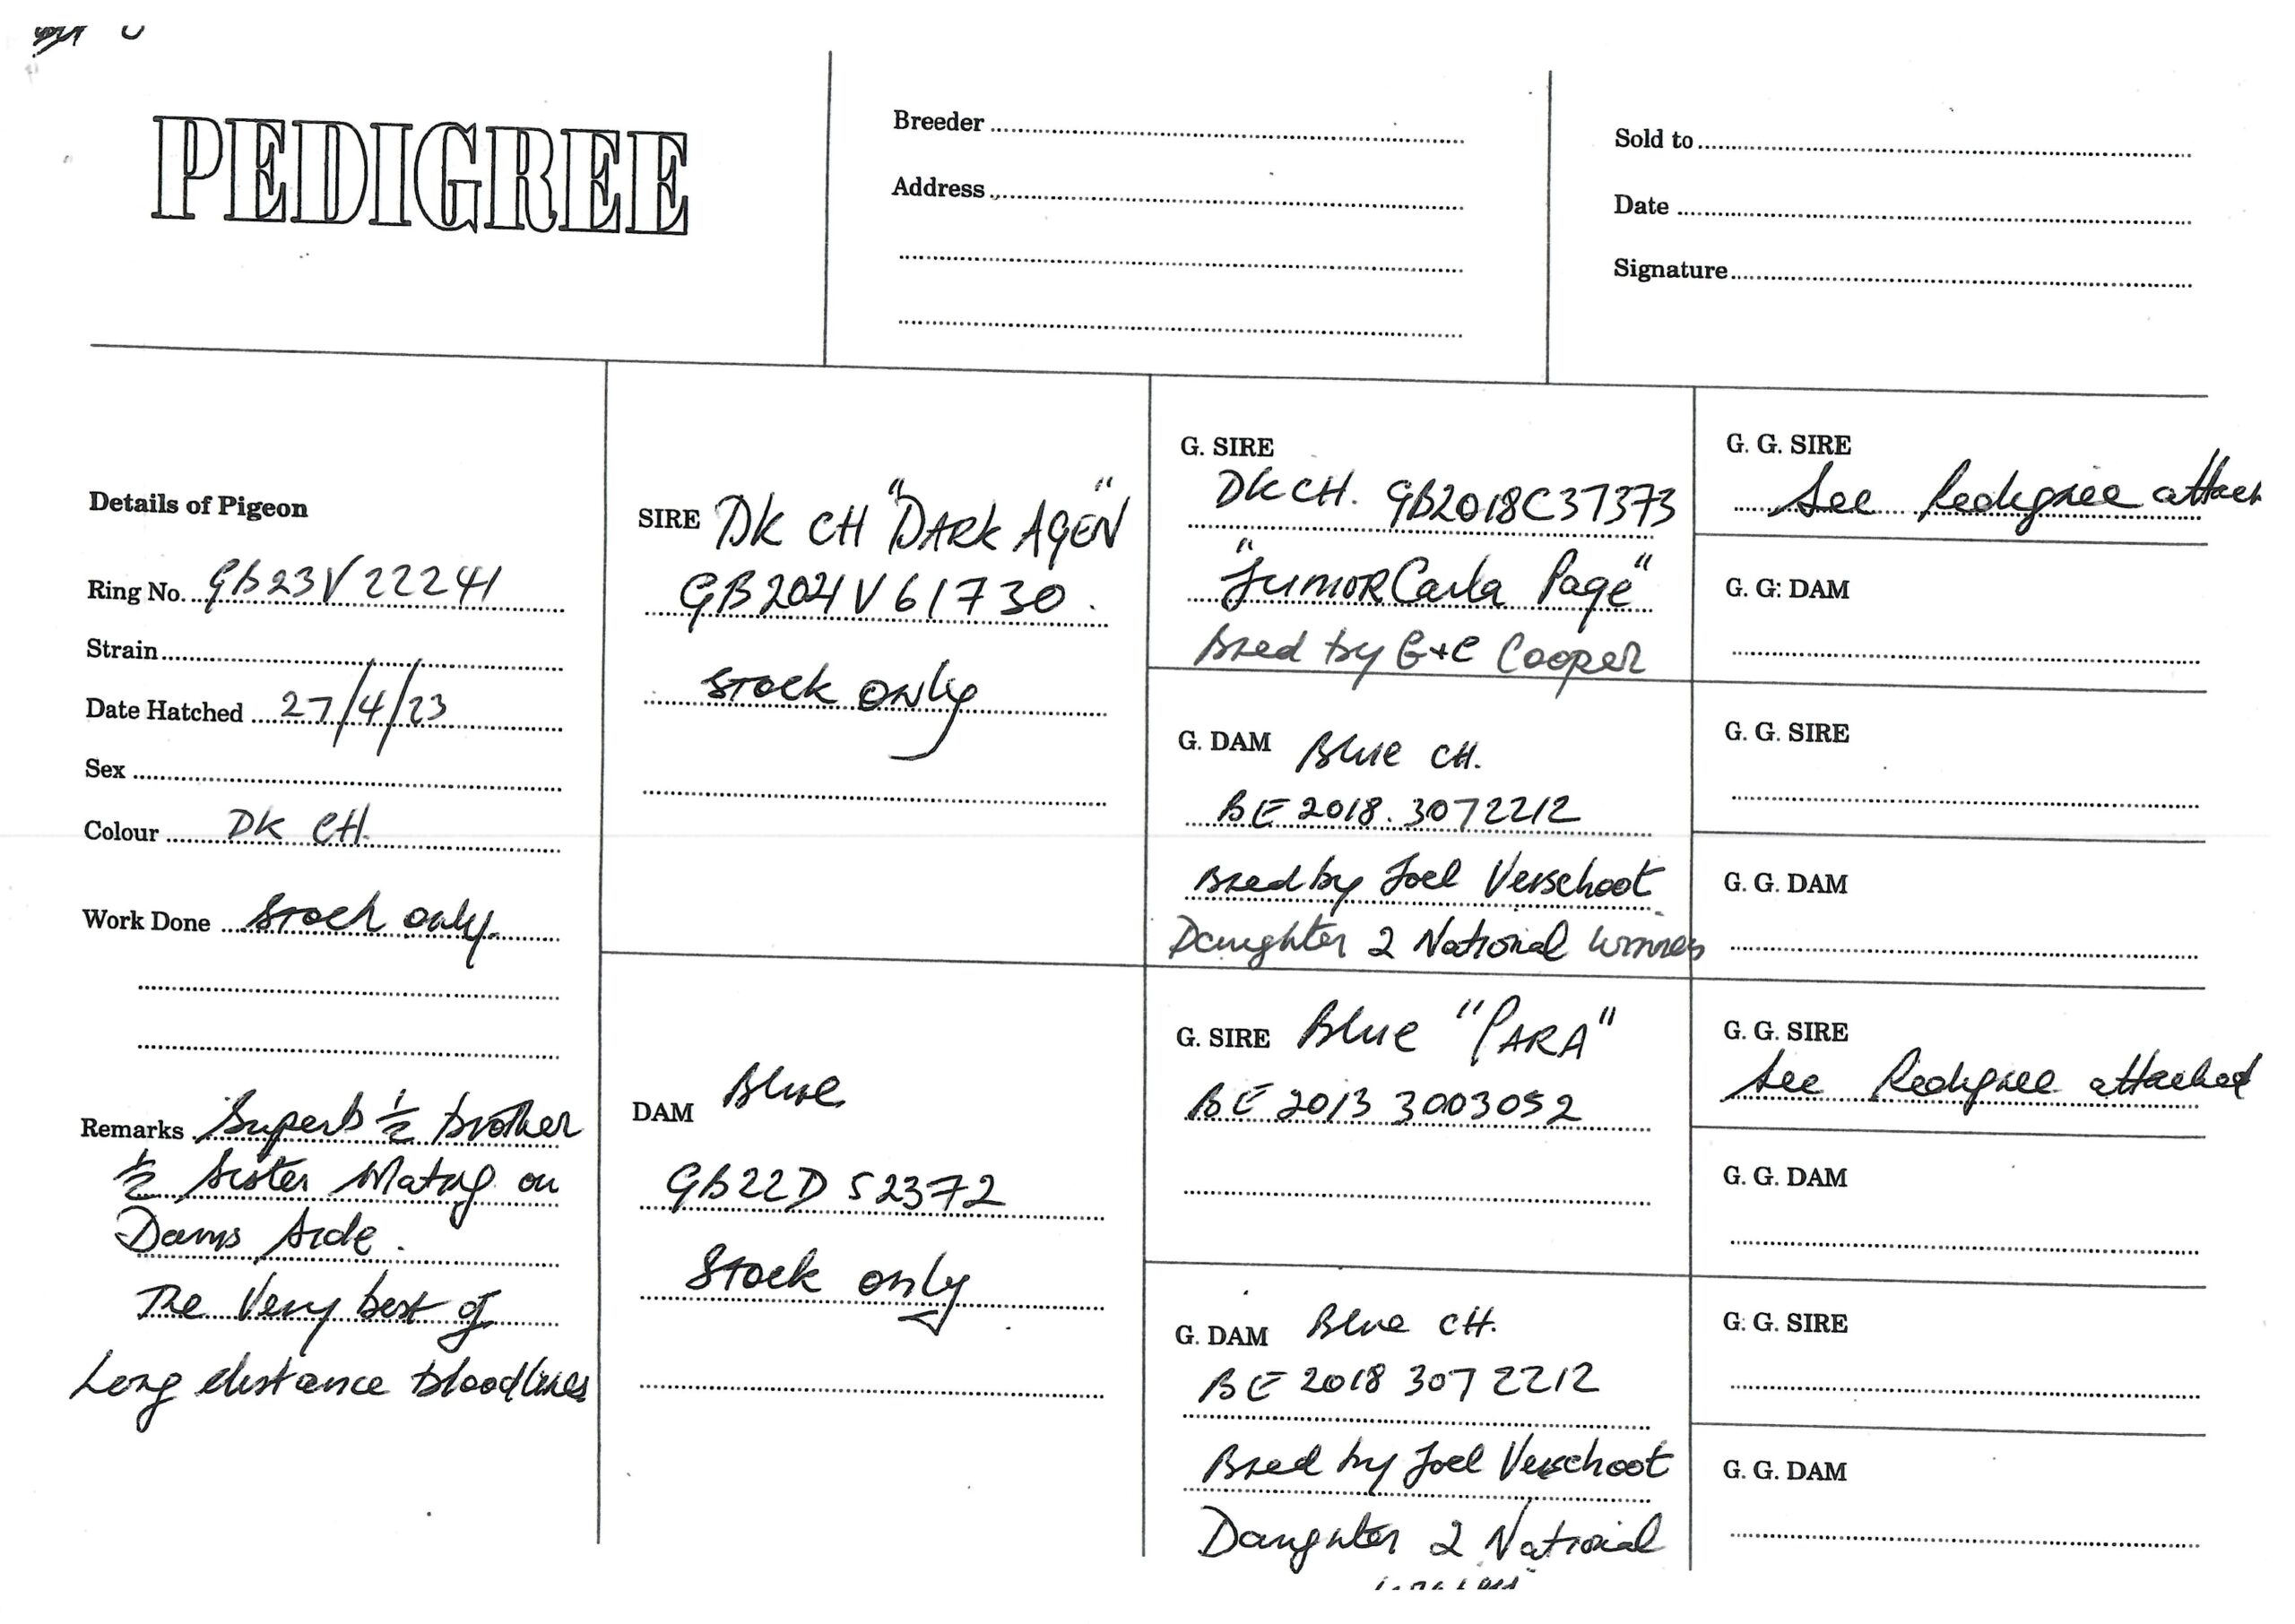 PEDIGREE
Breeder
Address
Sold to
Date
Signature
Details of Pigeon
Ring No. GB23V22241
Strain
Date Hatched 27/4/23
Sex
Colour DK CH.
Work Done Stock only.
Remarks Superb 1/2 brother
1/2 Sister Mating on
Dams Side.
The Very best of
Long distance bloodlines
SIRE DK CH "DARK AGEN"
GB2021V61730.
Stock only
DAM Blue
GB22D52372
Stock only
G. SIRE
DK CH. GB2018C37373
"JUNIOR Carla Page"
Bred by G+C Cooper
G. DAM Blue CH.
BE 2018. 3072212
Bred by Joel Verschoot
Daughter 2 National winners
G. SIRE Blue "PARA"
BE 2013 3003052
G. DAM Blue CH.
BE 2018 3072212
Bred by Joel Verschoot
Daughter 2 National
G. G. SIRE
See Pedigree attach
G. G: DAM
G. G. SIRE
G. G. DAM
G. G. SIRE
See Pedigree attached
G. G. DAM
G. G. SIRE
G. G. DAM